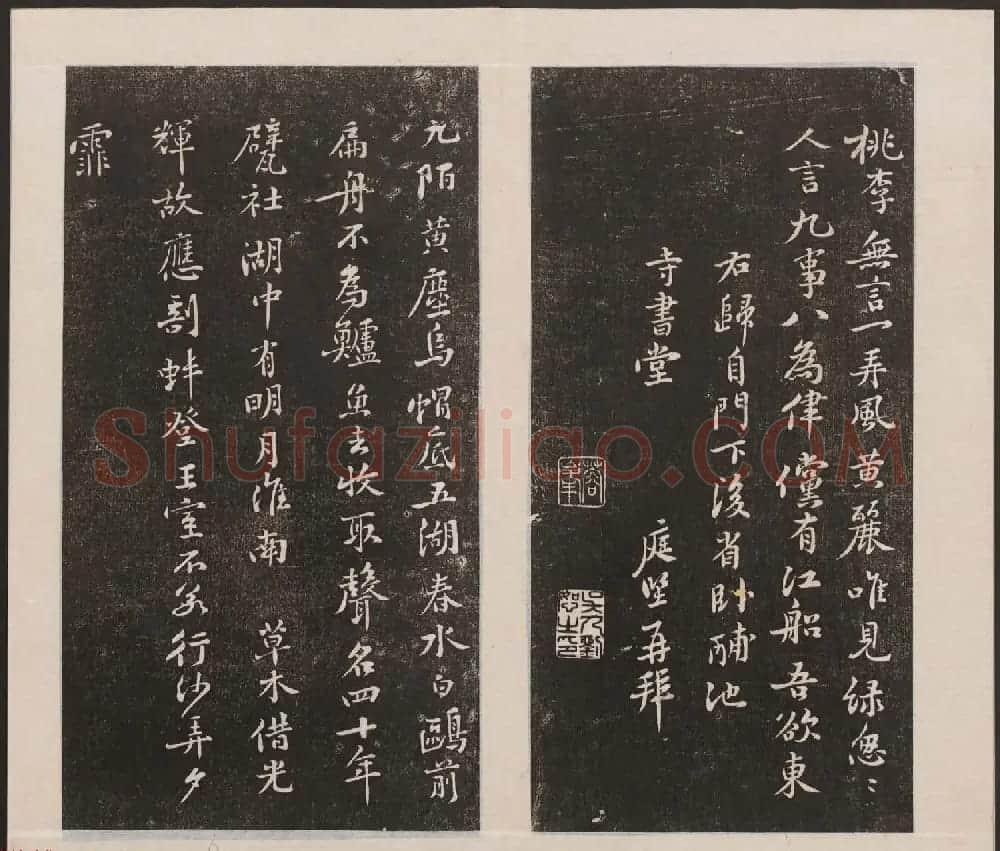 桃李無言一再風黃麗唯見緑怱〻
人言九事八為律儻有江船吾欲東
右歸自門下後省卧酺池
寺書堂 庭堅再拜
九陌黃塵烏帽底五湖春水白鷗前
扁舟不為鱸魚去收取聲名四十年
甓社湖中有明月淮南草木借光
輝故應剖蚌登王室不若行沙弄夕
霏
Shufaziliao.COM